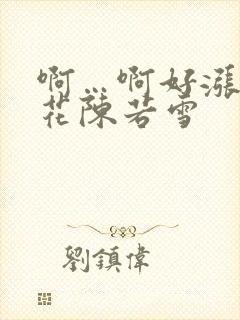 啊…啊好漲
花陳若雪
劉鎮偉